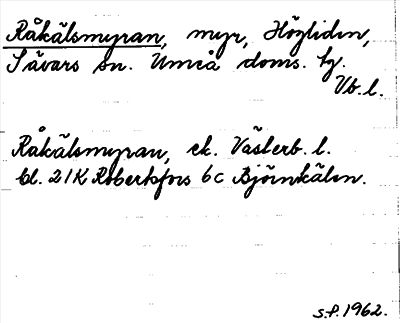 Råkälsmyran, myr, Högliden,
Sävars sn. Umeå doms. tg.
Vb. l.
Råkälsmyran, ek. Västerb. l.
bl. 21K Robertsfors 6c Björnkälen.
S.P. 1962.